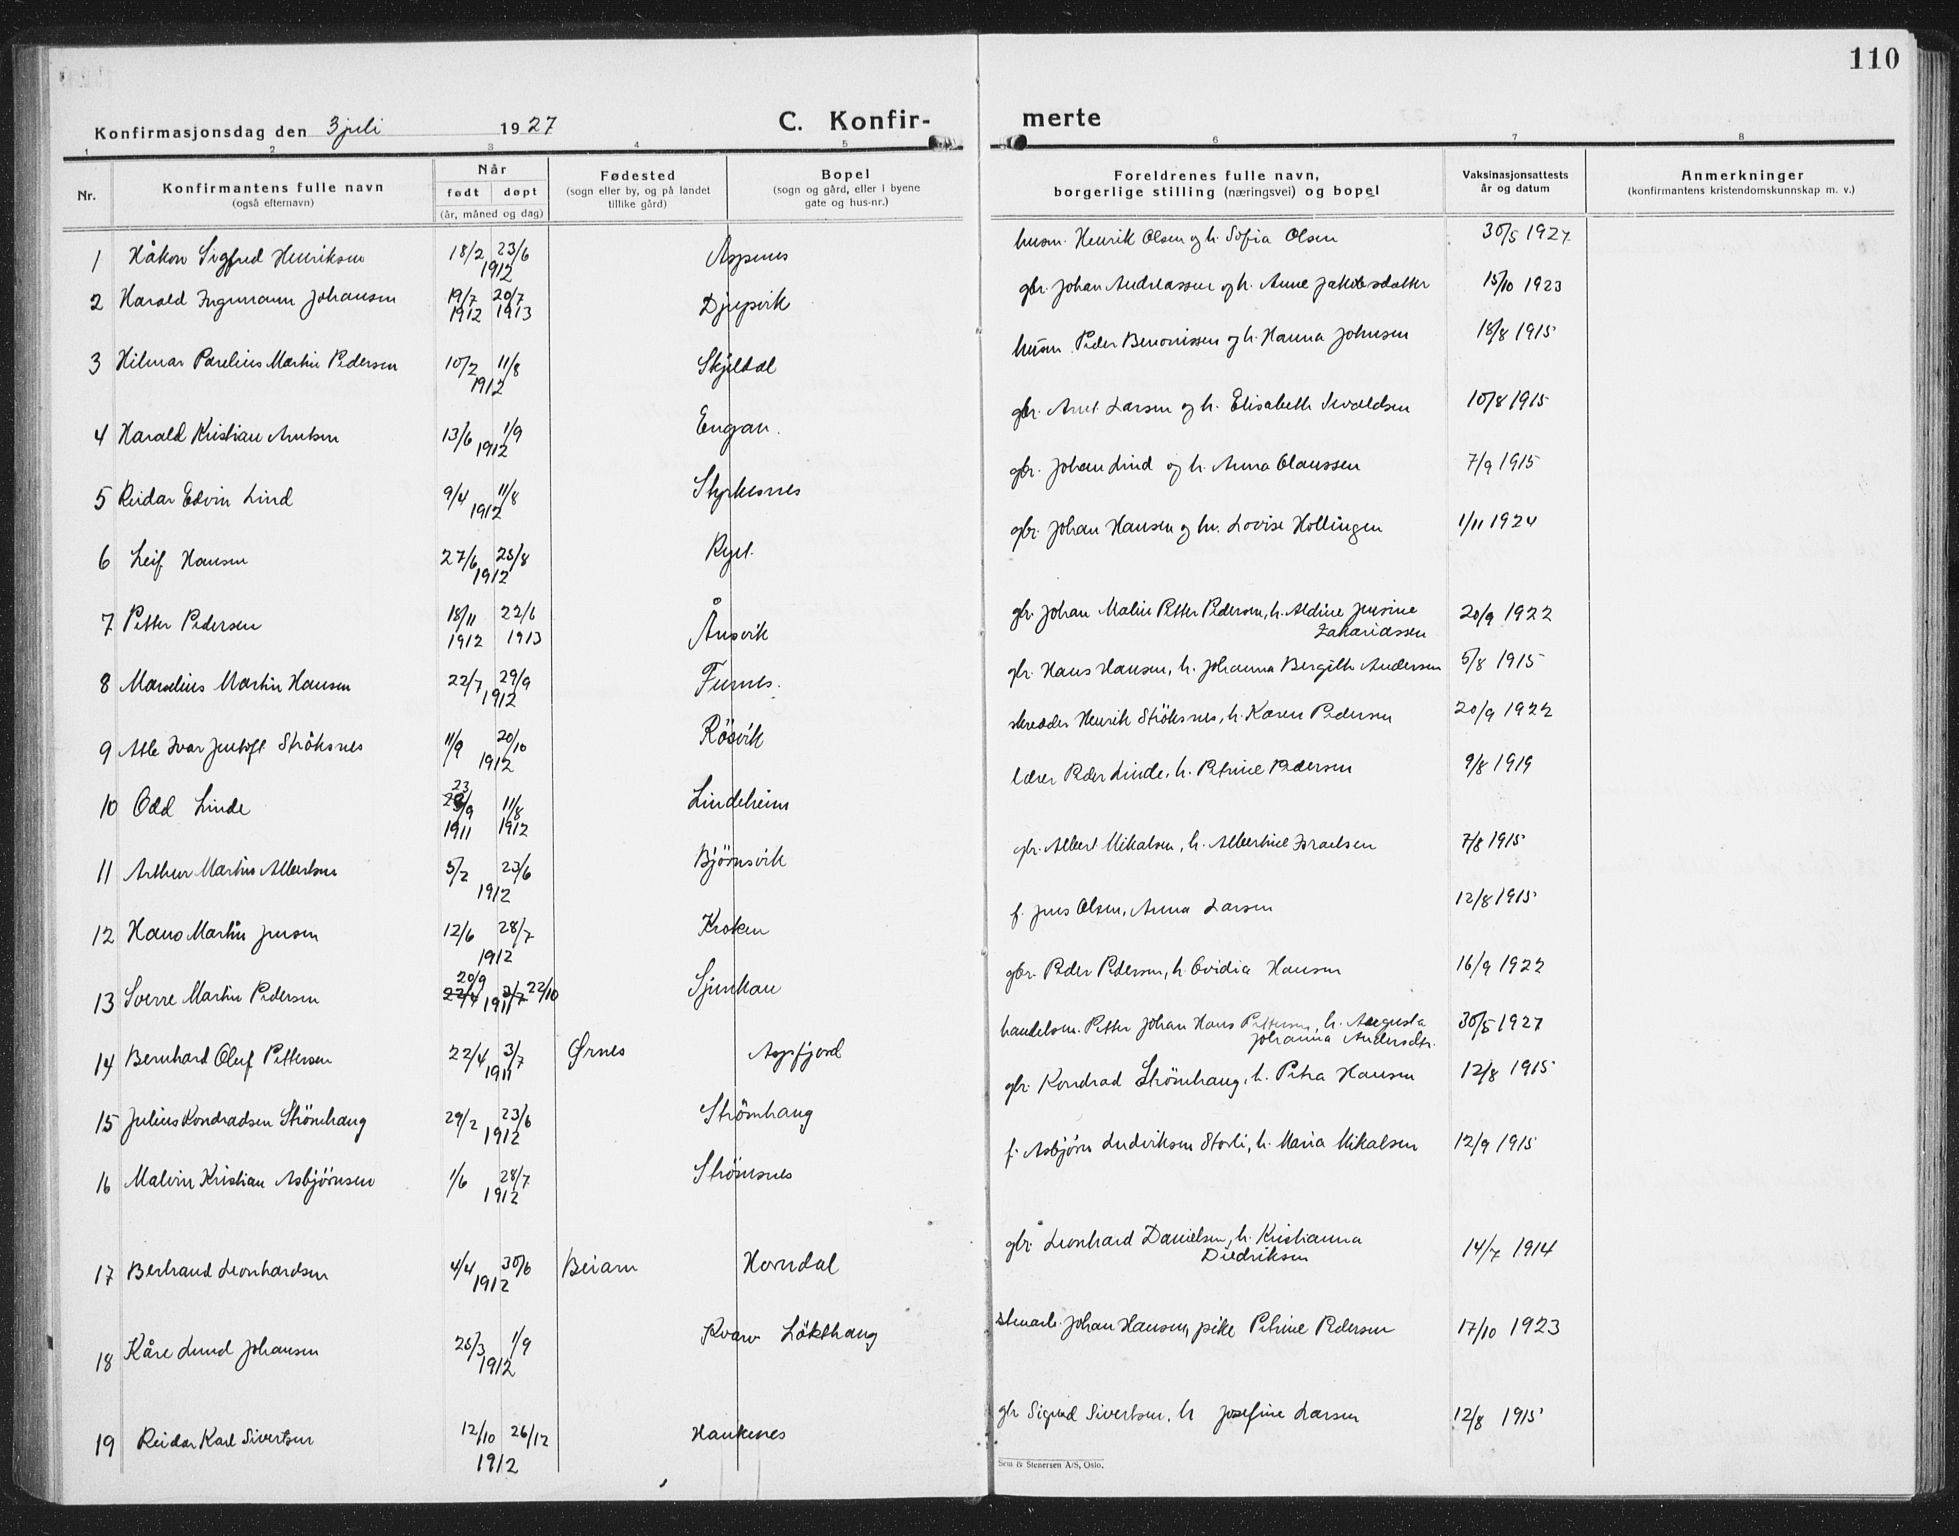 110
Konfirmasjonsdag den 3 juli 1927 C. Konfirmerte
1 2 3 4 5 6 7 8
Nr. Konfirmantens fulle navn (også efternavn)
Når født døpt (år, måned og dag)
Fødested (sogn eller by, og på landet tillike gård)
Bopel (sogn og gård, eller i byene gate og hus-nr.)
Foreldrenes fulle navn, borgerlige stilling (næringsvei) og bopel
Vaksinasjonsattests år og datum
Anmerkninger (konfirmantens kristendomskunnskap m. v.)
1 Håkon Sigfred Henriksen 18/2 23/6 1912 Aspenes husm. Henrik Olsen og h. Sofia Olsen 30/5 1927
2 Harald Ingemann Johansen 19/7 1912 20/7 1913 Djupvik gbr. Johan Andreassen og h. Anne Jakobsdatter 15/10 1923
3 Hilmar Parelius Martin Pedersen 10/2 11/8 1912 Skjeldal husm. Peder Benonissen og h. Hanna Johnsen 18/8 1915
4 Harald Kristian Arntsen 13/6 1/9 1912 Engan. gbr. Arnt Larsen og h. Elisabeth Sevaldsen 10/8 1915
5 Reidar Edvin Lind 9/4 11/8 1912 Styrkesnes gbr. Johan Lind og h. Anna Claussen 7/9 1915
6 Leif Hansen 27/6 25/8 1912 gbr. Johan Hansen og h. Lovise Hollingen 1/11 1924
7 Petter Pedersen 18/11 1912 22/6 1913 Ånsvik gbr. Johan Malin Petter Pedersen, h. Aldine Jensine Zakariassen 20/9 1922
8 Marselius Martin Hansen 22/7 29/9 1912 Furnes. gbr. Hans Hansen, h. Johanna Bergith Andersen 5/8 1915
9 Atle Ivar Jentoft Ströksnes 11/9 20/10 1912 Rösvik skredder Henrik Ströksnes, h. Karen Pedersen 20/9 1922
10 Odd Linde 23/9 1911 11/8 1912 Lindeheim lærer Peder Linde, h. Petrine Pedersen 9/8 1919
11 Arthur Martin Albertsen 5/2 23/6 1912 Bjørnsvik gbr. Albert Mikalsen, h. Albertine Israelsen 7/8 1915
12 Hans Martin Jensen 12/6 28/7 1912 Kroken f. Jens Olsen, Anna Larsen 12/8 1915
13 Sverre Martin Pedersen 20/9 22/4 1911 3/7 22/10 Sjunhau gbr. Peder Pedersen, h. Ovidia Hansen 16/9 1922
14 Bernhard Oluf Pettersen 22/4 3/7 1911 Ørnes Aspfjord handelsm. Petter Johan Hans Pettersen, h. Augusta Johanna Andersdtr. 30/5 1927
15 Julius Kondradsen Strömhaug 29/2 23/6 1912 Strömhaug gbr. Kondrad Strömhaug, h. Petra Hansen 12/8 1915
16 Malvin Kristian Asbjörnsen 1/6 28/7 1912 Strömsnes f. Asbjörn Ludviksen Storli, h. Maria Mikalsen 12/9 1915
17 Bertrand Leonhardsen 4/4 30/6 1912 Beiarn Horndal gbr. Leonhard Danielsen, h. Kristianna Diedriksen 14/7 1914
18 Kåre Lund Johansen 25/3 1/9 1912 Kvarv Lökthaug stenarb. Johan Hansen, pike Petrine Pedersen 17/10 1923
19 Reidar Karl Sivertsen 12/10 26/12 1912 Haukenes gbr Sigvad Sivertsen, h Josefine Larsen 12/8 1915
Sem & Stenersen A/S, Oslo.